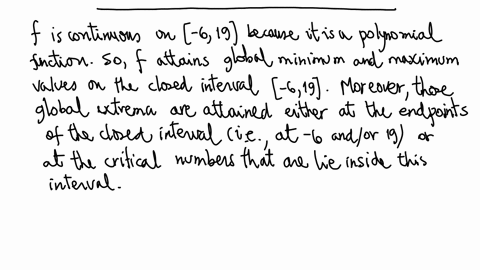 f is continuous on [-6, 19] because it is a polynomial
function. So, f attains global minimum and maximum
values on the closed interval [-6, 19]. Moreover, those
global extrema are attained either at the endpoints
of the closed interval (i.e., at -6 and/or 19) or
at the critical numbers that are lie inside this
interval.